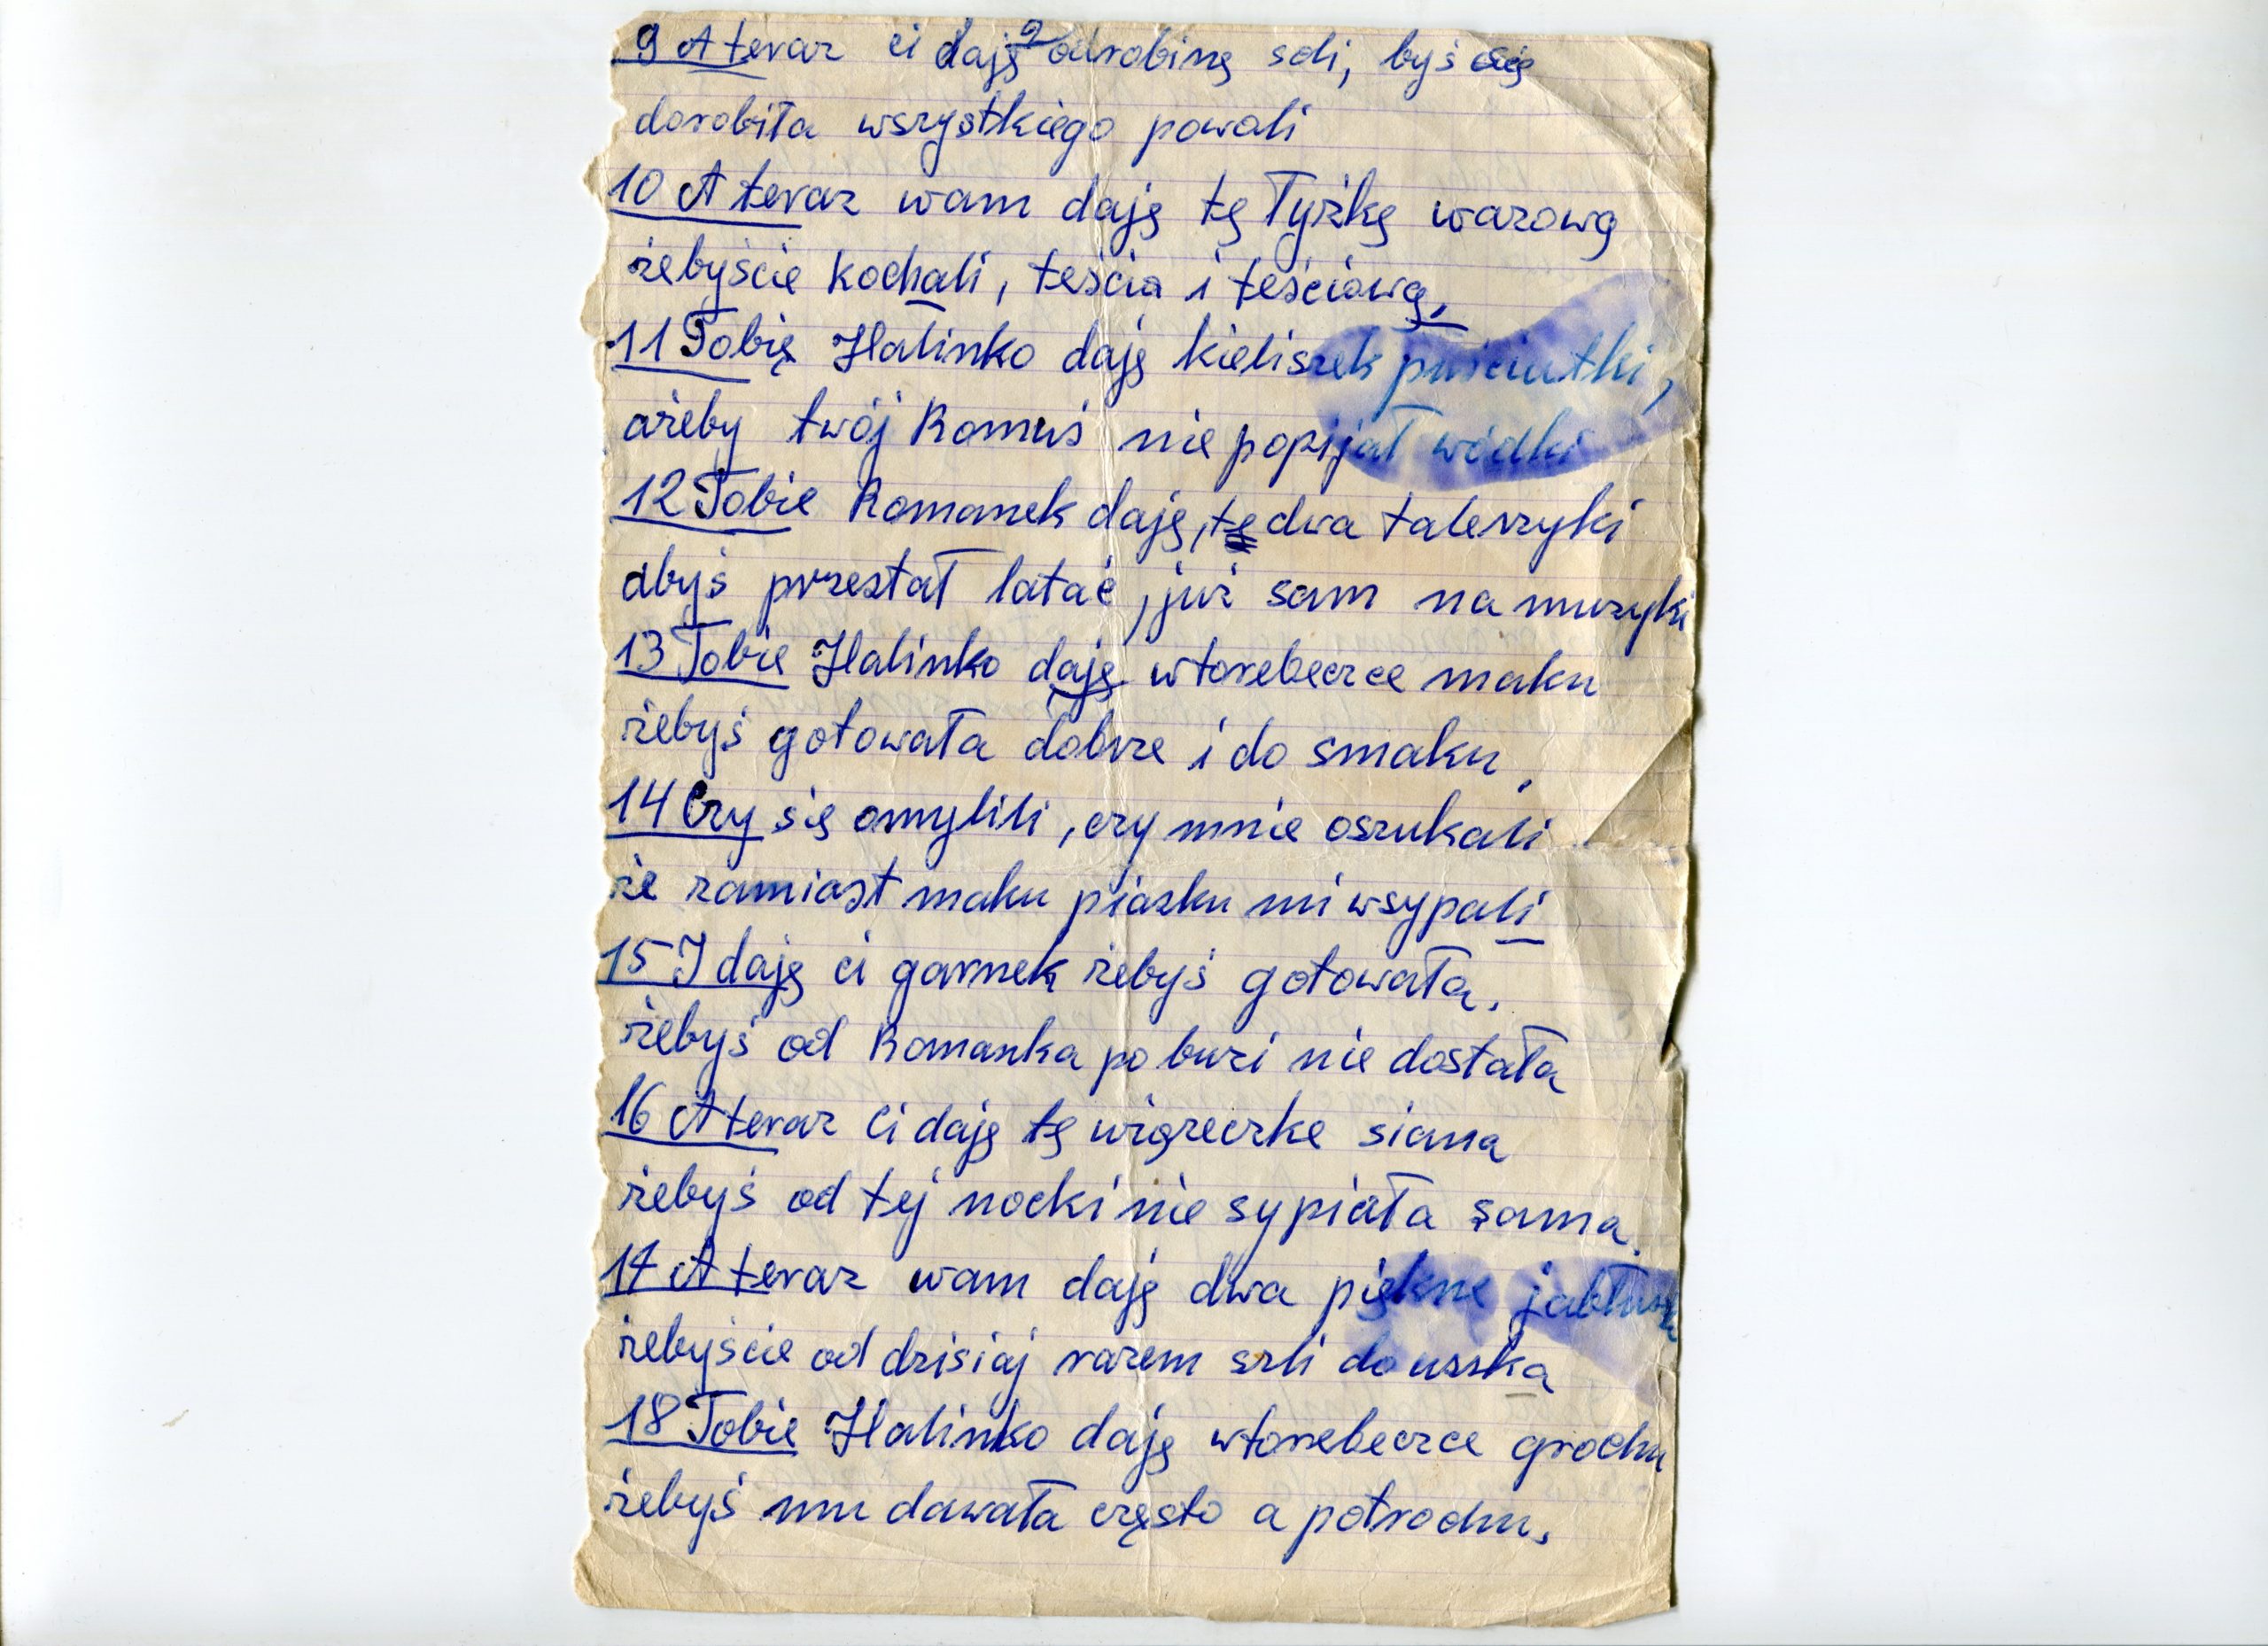 9 A teraz ci daję odrobinę soli, byś się
dorobiła wszystkiego powoli
10 A teraz wam daję tę łyżkę wazową
żebyście kochali, teścia i teściową,
11 Tobię Halinko daję kieliszek puściutki,
ażeby twój Romuś nie popijał wódki
12 Tobie Romanek daję, tę dwa talerzyki
abyś przestał latać, już sam na muzyki
13 Tobie Halinko daję w torebeczce maku
żebyś gotowała dobrze i do smaku.
14 Czy się omylili, czy mnie oszukali
że zamiast maku piasku mi wsypali
15 I daję ci garnek żebyś gotowała,
żebyś od Romanka po buzi nie dostała
16 A teraz Ci daję tę wiązeczke siana
żebyś od tej nocki nie sypiała sama.
17 A teraz wam daję dwa piękne jabłuszka
żebyście od dzisiaj razem szli do uszka
18 Tobie Halinko daję w torebeczce grochu
żebyś mu dawała często a potrochu.